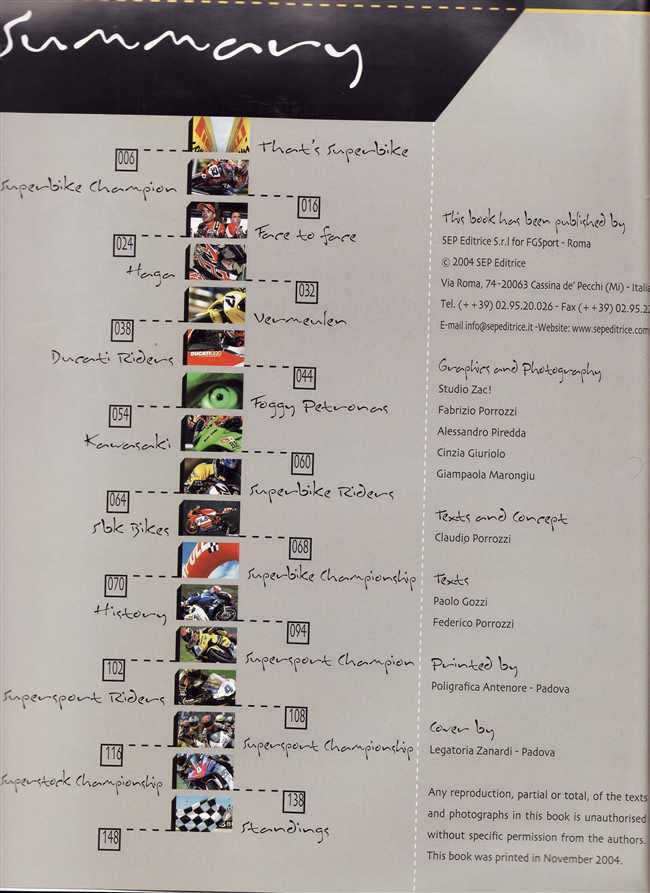 Summary
That's Superbike
006
Superbike Champion
016
Face to face
024
Haga
032
Vermeulen
038
Ducati Riders
044
Foggy Petronas
054
Kawasaki
060
Superbike Riders
064
Sbk Bikes
068
Superbike Championship
070
History
094
Supersport Champion
102
Supersport Riders
108
Supersport Championship
116
Superstock Championship
138
Standings
148
This book has been published by
SEP Editrice S.r.l for FGSport - Roma
© 2004 SEP Editrice
Via Roma, 74-20063 Cassina de' Pecchi (Mi) - Italia
Tel. (++39) 02.95.20.026 - Fax (++39) 02.95.22
E-mail info@sepeditrice.it -Website: www.sepeditrice.com
Graphics and Photography
Studio Zac!
Fabrizio Porrozzi
Alessandro Piredda
Cinzia Giuriolo
Giampaola Marongiu
Texts and Concept
Claudio Porrozzi
Texts
Paolo Gozzi
Federico Porrozzi
Printed by
Poligrafica Antenore - Padova
Cover by
Legatoria Zanardi - Padova
Any reproduction, partial or total, of the texts
and photographs in this book is unauthorised
without specific permission from the authors.
This book was printed in November 2004.